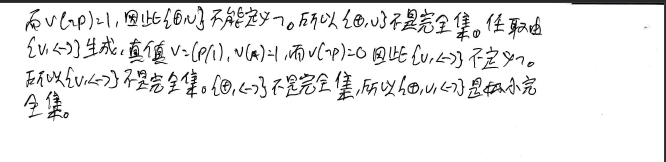 而v(¬p)=1,因此{⊕,∨}不能定义¬。所以{⊕,∨}不是完全集。任取由
{∨,↔}生成,真值v=(p/1),v(A)=1,而v(¬p)=0因此{∨,↔}不定义¬。
所以{∨,↔}不是完全集。{⊕,↔}不是完全集,所以{⊕,∨,↔}是极小完
全集。